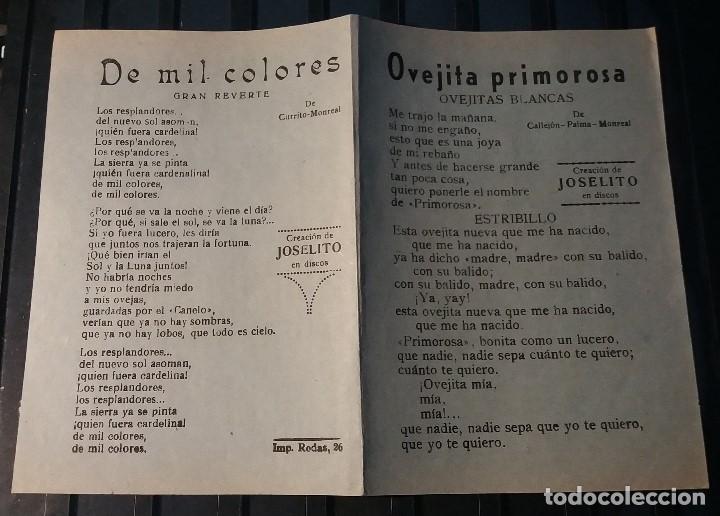 De mil colores
GRAN REVERTE
De
Currito-Monreal
Los resplandores...
del nuevo sol asoman,
¡quién fuera cardelina!
Los resp'andores,
los resp'andores...
La sierra ya se pinta
¡quién fuera cardenalina!
de mil colores,
de mil colores.
¿Por qué se va la noche y viene el día?
¿Por qué, si sale el sol, se va la luna?...
Si yo fuera lucero, les diría
que juntos nos trajeran la fortuna.
¡Qué bien irían el
Sol y la Luna juntos!
No habría noches
y yo no tendría miedo
a mis ovejas,
guardadas por el «Canelo»,
verían que ya no hay sombras,
que ya no hay lobos, que todo es cielo.
Creación de
JOSELITO
en discos
Los resplandores...
del nuevo sol asoman,
¡quien fuera cardelina!
Los resplandores,
los resplandores...
La sierra ya se pinta
¡quien fuera cardelina!
de mil colores,
de mil colores.
Imp. Rodas, 26
Ovejita primorosa
OVEJITAS BLANCAS
De
Callejón-Palma-Monreal
Me trajo la mañana,
si no me engaño,
esto que es una joya
de mi rebaño
Y antes de hacerse grande
tan poca cosa,
quiero ponerle el nombre
de «Primorosa».
Creación de
JOSELITO
en discos
ESTRIBILLO
Esta ovejita nueva que me ha nacido,
que me ha nacido,
ya ha dicho «madre, madre» con su balido,
con su balido;
con su balido, madre, con su balido,
¡Ya, yay!
esta ovejita nueva que me ha nacido,
que me ha nacido.
«Primorosa», bonita como un lucero,
que nadie, nadie sepa cuánto te quiero;
cuánto te quiero.
¡Ovejita mía,
mía,
mía!...
que nadie, nadie sepa que yo te quiero,
que yo te quiero.
todocoleccion.net